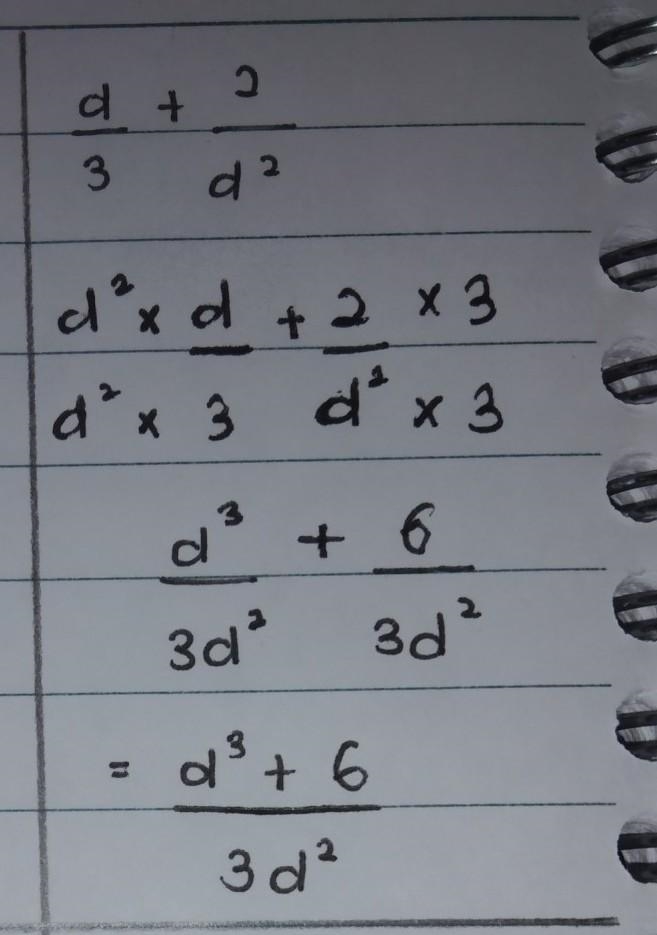 d/3 + 2/d²
d² × d/d² × 3 + 2 × 3/d² × 3
d³/3d² + 6/3d²
= d³ + 6/3d²